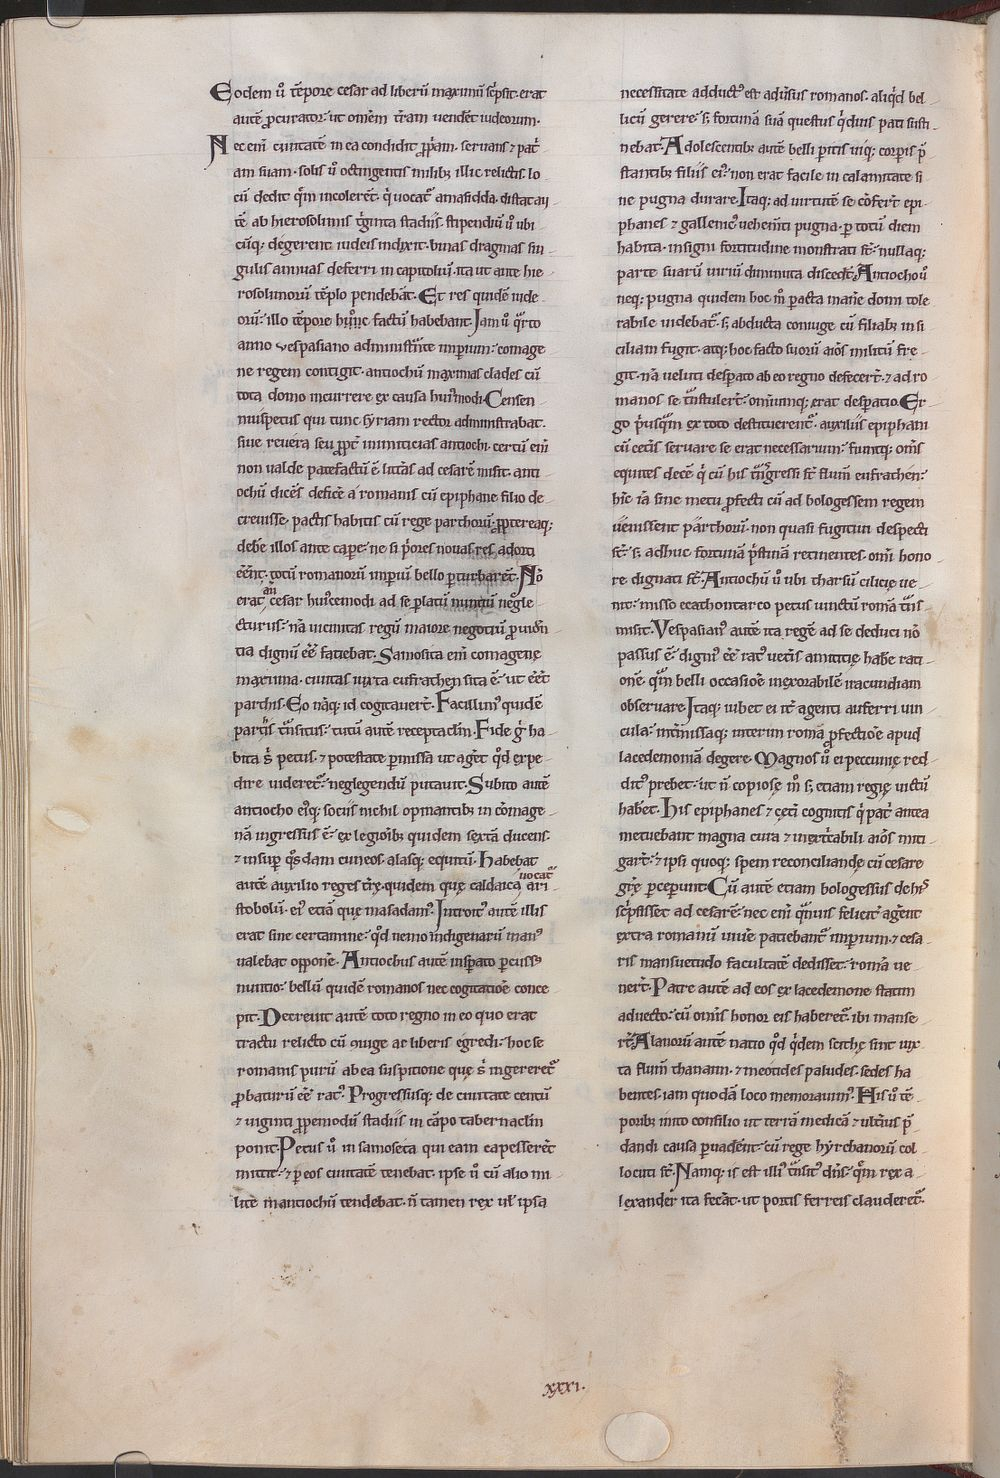 Eodem ũ tẽpore cesar ad liberũ maximũ sc̃psit. erat
autẽ ꝓcurator. ut om̃em t̃ram uenderet iudeorum.
Nec em̃ ciuitatẽ in ea condidit ꝓp̃am. seruans ⁊ pat̃
am suam. solis ũ octingentis milib; illic relictis. lo
cũ dedit q̃m incolerent. q̃ uocat᷑ amasidda. distat au
tẽ ab hierosolimis t̃ginta stadiis. stipendiũ ũ ubi
cũq; degerent iudeis indixit. binas dragmas sin
gulis annuas deferri in capitoliũ. ita ut ante hie
rosolimorũ tẽplo pendebãt. Et res quidẽ iude
orũ. illo tẽpore hũc factũ habebant. Iam ũ q̃rto
anno uespasiano administ̃nte imperium. comage
ne regem contigit. antiochũ maximas clades cũ
tota domo incurrere ex causa hui᷒modi. Censen
niuispetus qui tunc syriam rector administrabat.
siue reuera seu ꝓpt̃ inimicicias antiochi. certũ em̃
non ualde patefactũ ẽ. litt̃as ad cesarẽ misit. anti
ochũ dicẽs defic̃e a romanis cũ epiphane filio de
creuisse. pactis habitis cũ rege parthorũ. ꝓptereaq;
deb̃e illos ante cap̃e. ne si p̃ores nouas res adorti
eẽnt. totũ romanorũ imperiũ bello ꝑturbarent. Nõ
erat aũ cesar hui᷒cemodi ad se ꝑlatũ nuntiũ negle
cturus. nã uicinitas regũ maiore negotiũ ꝓuidẽ
tia dignũ eẽ faciebat. Samosita em̃ comagenę
maxima. ciuitas iuxta eufrathen sita ẽ. ut eẽt
parthis. Eo nãq; id cogitauer̃t. Facillim᷒ quidẽ
partis t̃nsitus. tutũ autẽ receptac̃lm. Fide g̃ ha
bita s̃ petus. ⁊ potestate ꝑmissa ut ageret q̃d expe
dire uideret᷑. neglegendũ putauit. Subito autẽ
antiocho ei᷒q; sociis nichil opinantib; in cõmage
nã ingressus ẽ. ex legionib; quidem sextã ducens.
⁊ insup̃ q̃sdam cuneos. alasq; equitũ. habebat
autẽ auxilio reges t̃rę. quidem quę caldaica uocat᷑ ari
stobolũ. ei᷒ etiã quę masadam᷒. Introit᷒ autẽ illis
erat sine certamine. q̃d nemo indigenarũ man᷒
ualebat oppon̄e. Antiochus autẽ insp̃ato ꝑcuss᷒
nuntio. bellũ quidẽ romanos nec cogitatiõe conce
pit. Decreuit autẽ toto regno in eo quo erat
tractu relicto cũ ꝯiuge ac liberis egredi. hoc se
romanis purũ ab ea suspitione quę s̃ ingereret᷑
ꝓbaturũ eẽ rat᷒. Progressusq; de ciuitate centũ
⁊ uiginti ꝓpemodũ stadiis in cãpo tabernac̃lm
ponit. Petus ũ in samoseta qui eam capesseret
mittit. ⁊ ꝑ eos ciuitatẽ tenebat. ipse ũ cũ alio mi
lite in antiochũ tendebat. ñ tamen rex uł ipsa
necessitate adduct᷒ est adũsus romanos. aliq̃d bel
licũ gerere. s; fortunã suã questus q̃duis pati susti
nebat. Adolescentib; autẽ belli ꝑitis uiq; corꝑis p̃
stantib; filiis ei᷒. non erat facile in calamitate si
ne pugna durare. Itaq; ad uirtutẽ se cõfer̃t epi
phanes ⁊ gallenic᷒ uehem̃ti pugna. ꝑ totũ diem
habita. insigni fortitudine monstrati st̃. nullaq;
parte suarũ uiriũ diminuta disceder̃t. Antiocho ũ
neq; pugna quidem hoc m̃ ꝑacta mañe domi tole
rabile uidebat᷑. s; abducta coniuge cũ filiab; in si
ciliam fugit. atq; hoc facto suorũ aĩos militũ fre
git. nã ueluti desꝑato ab eo regno defecer̃t. ⁊ ad ro
manos se t̃nstuler̃t. om̃iumq; erat desꝑatio. Er
go p̃usq̃m ex toto destituerent᷑. auxiliis epiphani
cũ cet̃is seruare se erat necessarium. fiuntq; om̃s
equites decẽ q̃ cũ his t̃nsgressi st̃ flum̃ eufrathen.
hĩc iã sine metu ꝓfecti cũ ad bologessem regem
uenissent parthorũ. non quasi fugitiui despecti
st̃. s; adhuc fortunã p̃stinã retinentes. om̃i hono
re dignati st̃. Antiochũ ũ ubi tharsũ cilicię ue
nit. misso ecathontarco petus uinctũ romã t̃ns
misit. Vespasian᷒ autẽ ita regẽ ad se deduci nõ
passus ẽ. dign᷒ eẽ rat᷒ uet̃is amicitię hab̃e rati
onẽ. q̃m belli occasiõe inexorabilẽ iracundiam
obseruare. Itaq; iubet ei it̃ agenti auferri uin
cula. int̃missaq; interim romã ꝓfectiõe apud
lacedemoniã degere. Magnos ũ ei peccunię red
dit᷒ prebet. ut ñ copiosę m̃ s; etiam regię uictũ
haberet. His epiphanes ⁊ cęt̃i cognitis q̃ pat̃ antea
metuebant magna cura ⁊ inext̃cabili aĩos miti
gar̃t. ⁊ ipsi quoq; spem reconciliandę cũ cesare
gr̃ę ꝑceperunt. Cũ autẽ etiam bologessus de hi᷒
sc̃psisset ad cesarẽ. nec em̃ q̃muis felicit̃ agerent
extra romanũ uiuere patiebant᷑ imperium. ⁊ cesa
ris mansuetudo facultatẽ dedisset. romã ue
ner̃t. Patre autẽ ad eos ex lacedemone statim
aduecto. cũ om̃is honor eis haberet᷑. ibi manse
rẽ. Alanorũ autẽ natio q̃d q̃dem scithę sint iux
ta flum̃ thanam. ⁊ meotides paludes. sedes ha
bentes. iam quodã loco memorauim᷒. His ũ tẽ
porib; inito consilio ut terrã medicã ⁊ ulteri᷒ p̃
dandi causa ꝑuaderent. cũ rege hyrchanorũ col
locuti st̃. Namq; is est illi᷒ t̃nsit᷒ dñs. q̃m rex a
lexander ita fecerat. ut portis ferreis clauderet᷑.
xxxi.